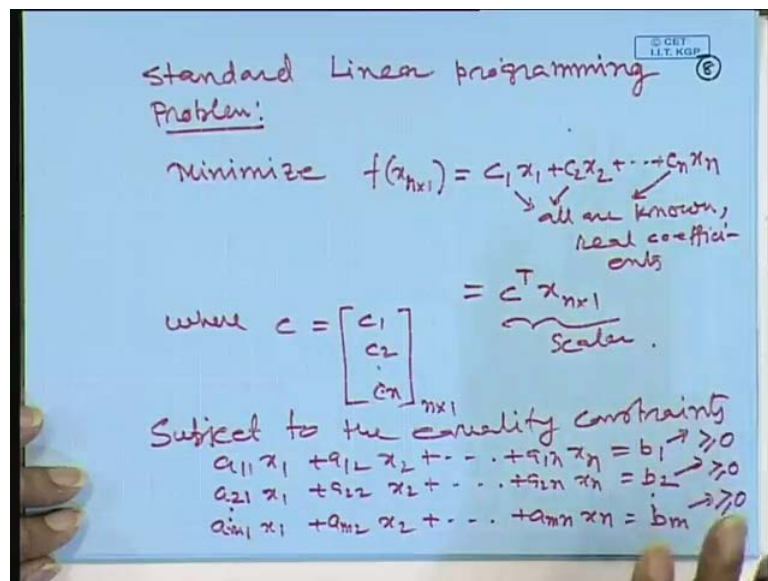 © CET
I.I.T. KGP
8
Standard Linear programming
Problem:
Minimize f(x_{n×1}) = c_1 x_1 + c_2 x_2 + ··· + c_n x_n
all are known,
real coeffici-
ents
= c^T x_{n×1}
Scalar.
where c = [c_1 c_2 . c_n]_{n×1}
Subject to the equality constraints
a_{11} x_1 + a_{12} x_2 + - - - . + a_{1n} x_n = b_1 → ≥0
a_{21} x_1 + a_{22} x_2 + - - - . + a_{2n} x_n = b_2 → ≥0
a_{m1} x_1 + a_{m2} x_2 + - - - . + a_{mn} x_n = b_m → ≥0